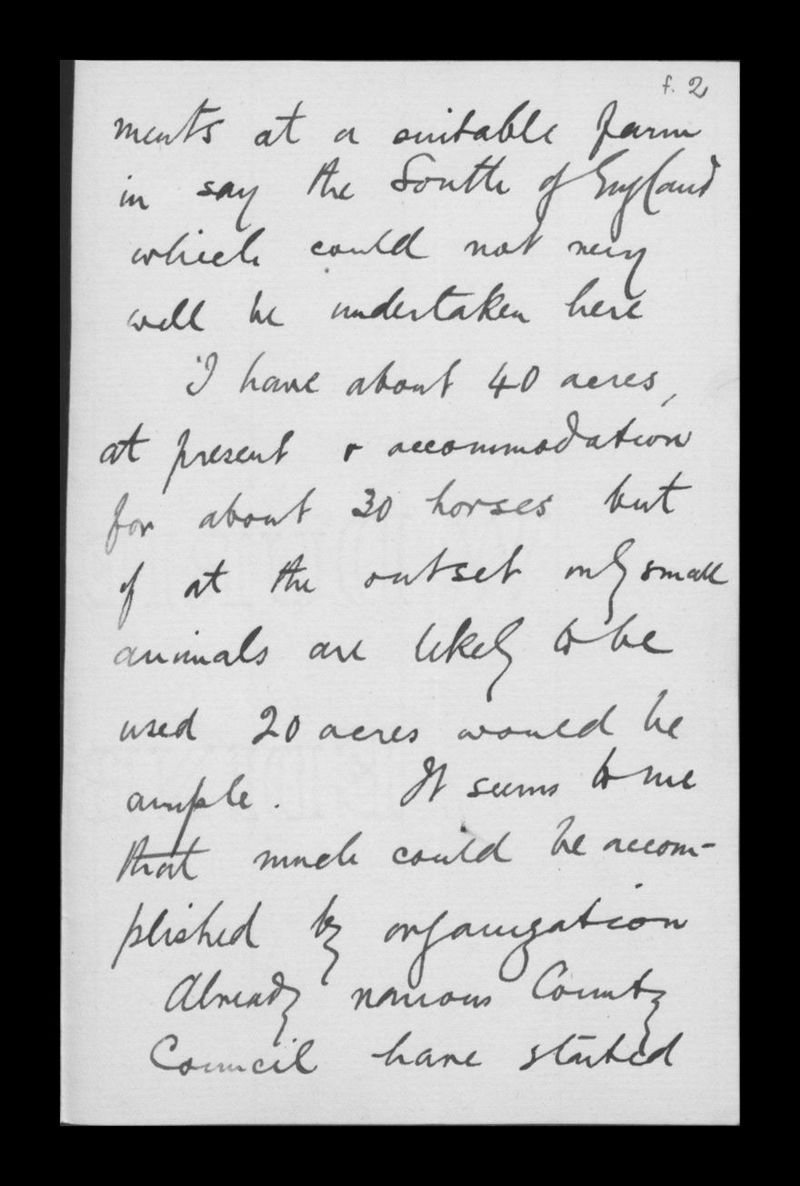 f. 2
ments at a suitable farm
in say the South of England
which could not very
well be undertaken here
I have about 40 acres,
at present & accommodation
for about 30 horses but
if at the outset only small
animals are likely to be
used 20 acres would be
ample. It seems to me
that much could be accom-
plished by organization
Already various County
Council have started